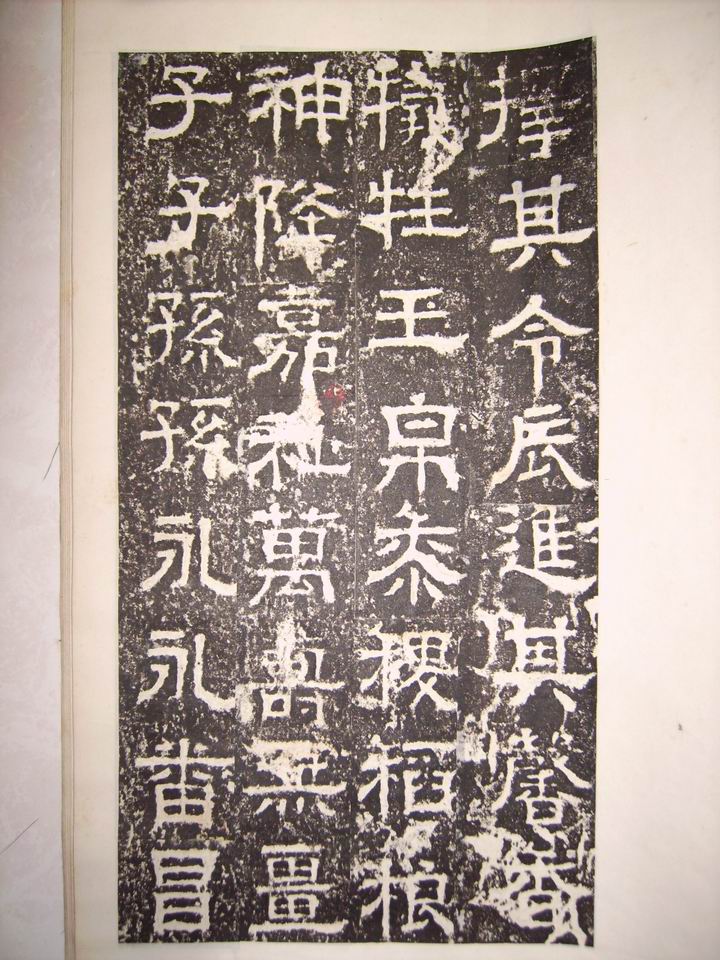 擇其令辰進其馨香
犧牲玉帛黍稷稻粮
神降嘉祉萬壽無畺
子子孫孫永永番昌